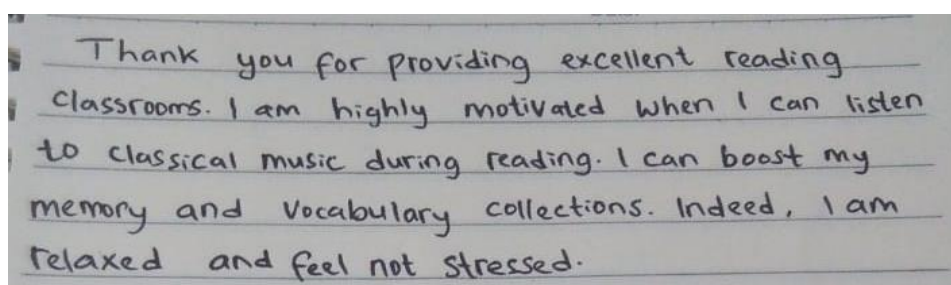 Thank you for providing excellent reading
classrooms. I am highly motivated when I can listen
to classical music during reading. I can boost my
memory and vocabulary collections. Indeed, I am
relaxed and feel not stressed.